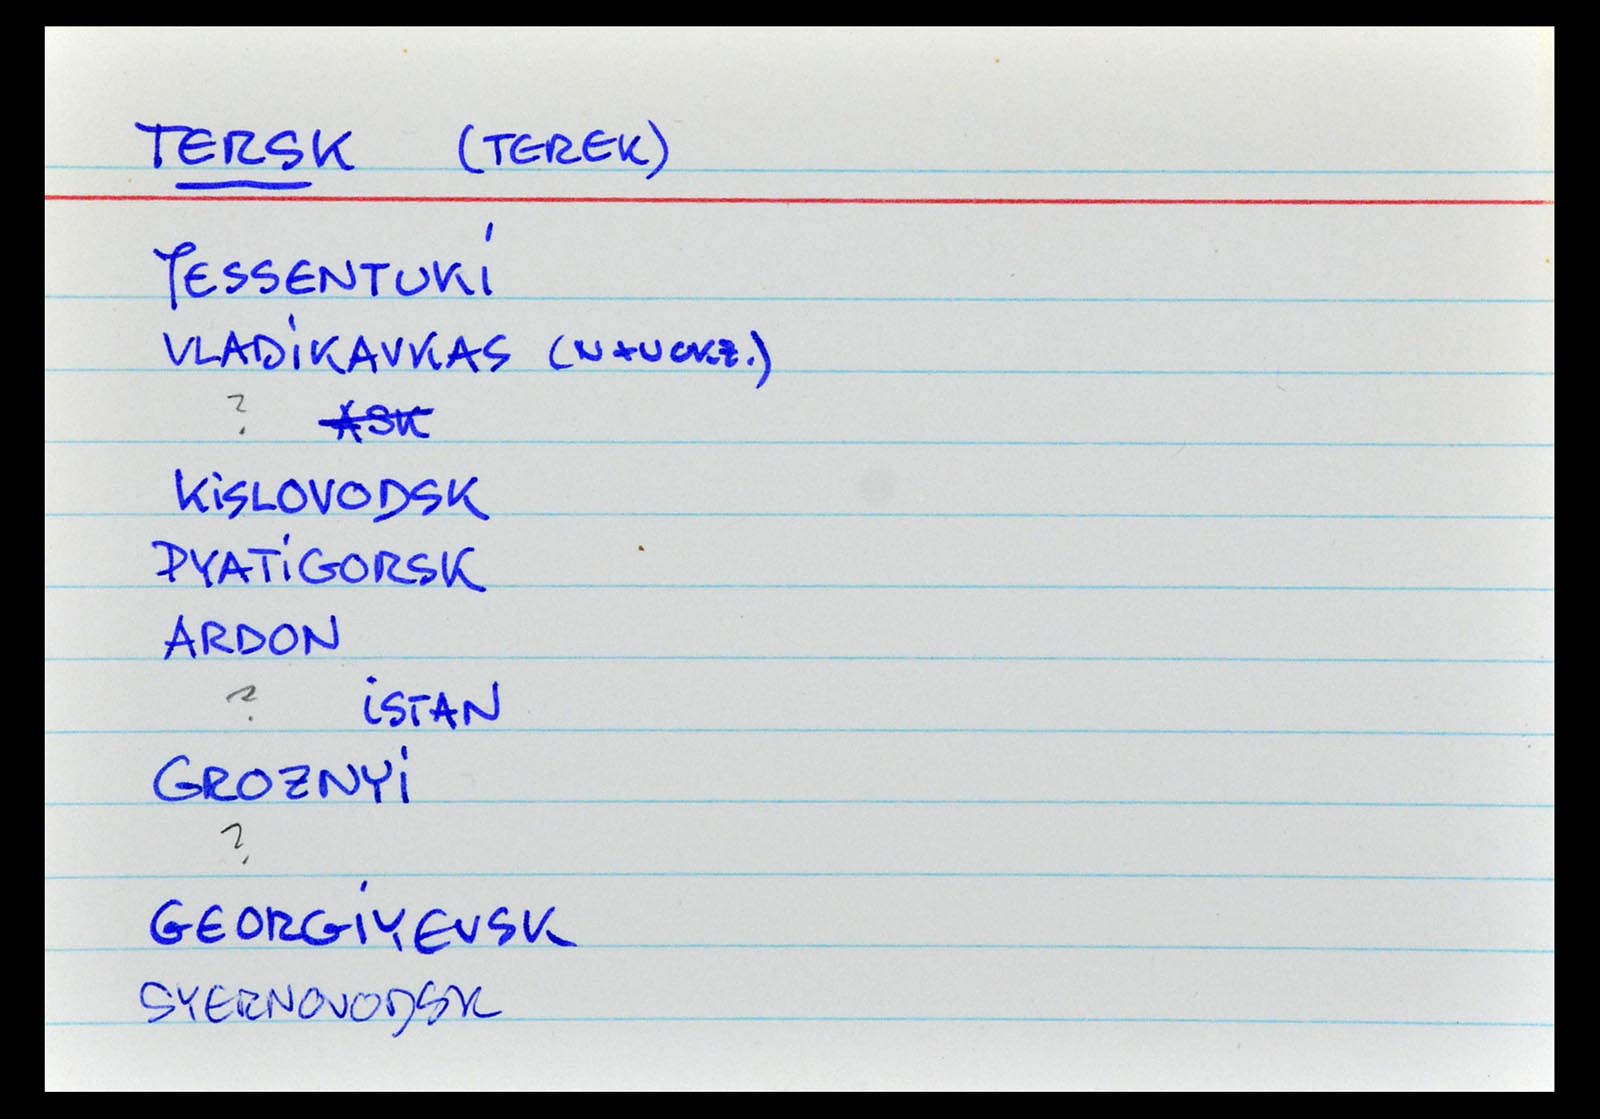 TERSK (TEREK)
YESSENTUKI
VLADIKAVKAS
? ASK
KISLOVODSK
PYATIGORSK
ARDON
? ISTAN
GROZNYI
?
GEORGIYEVSK
SYERNOVODSK